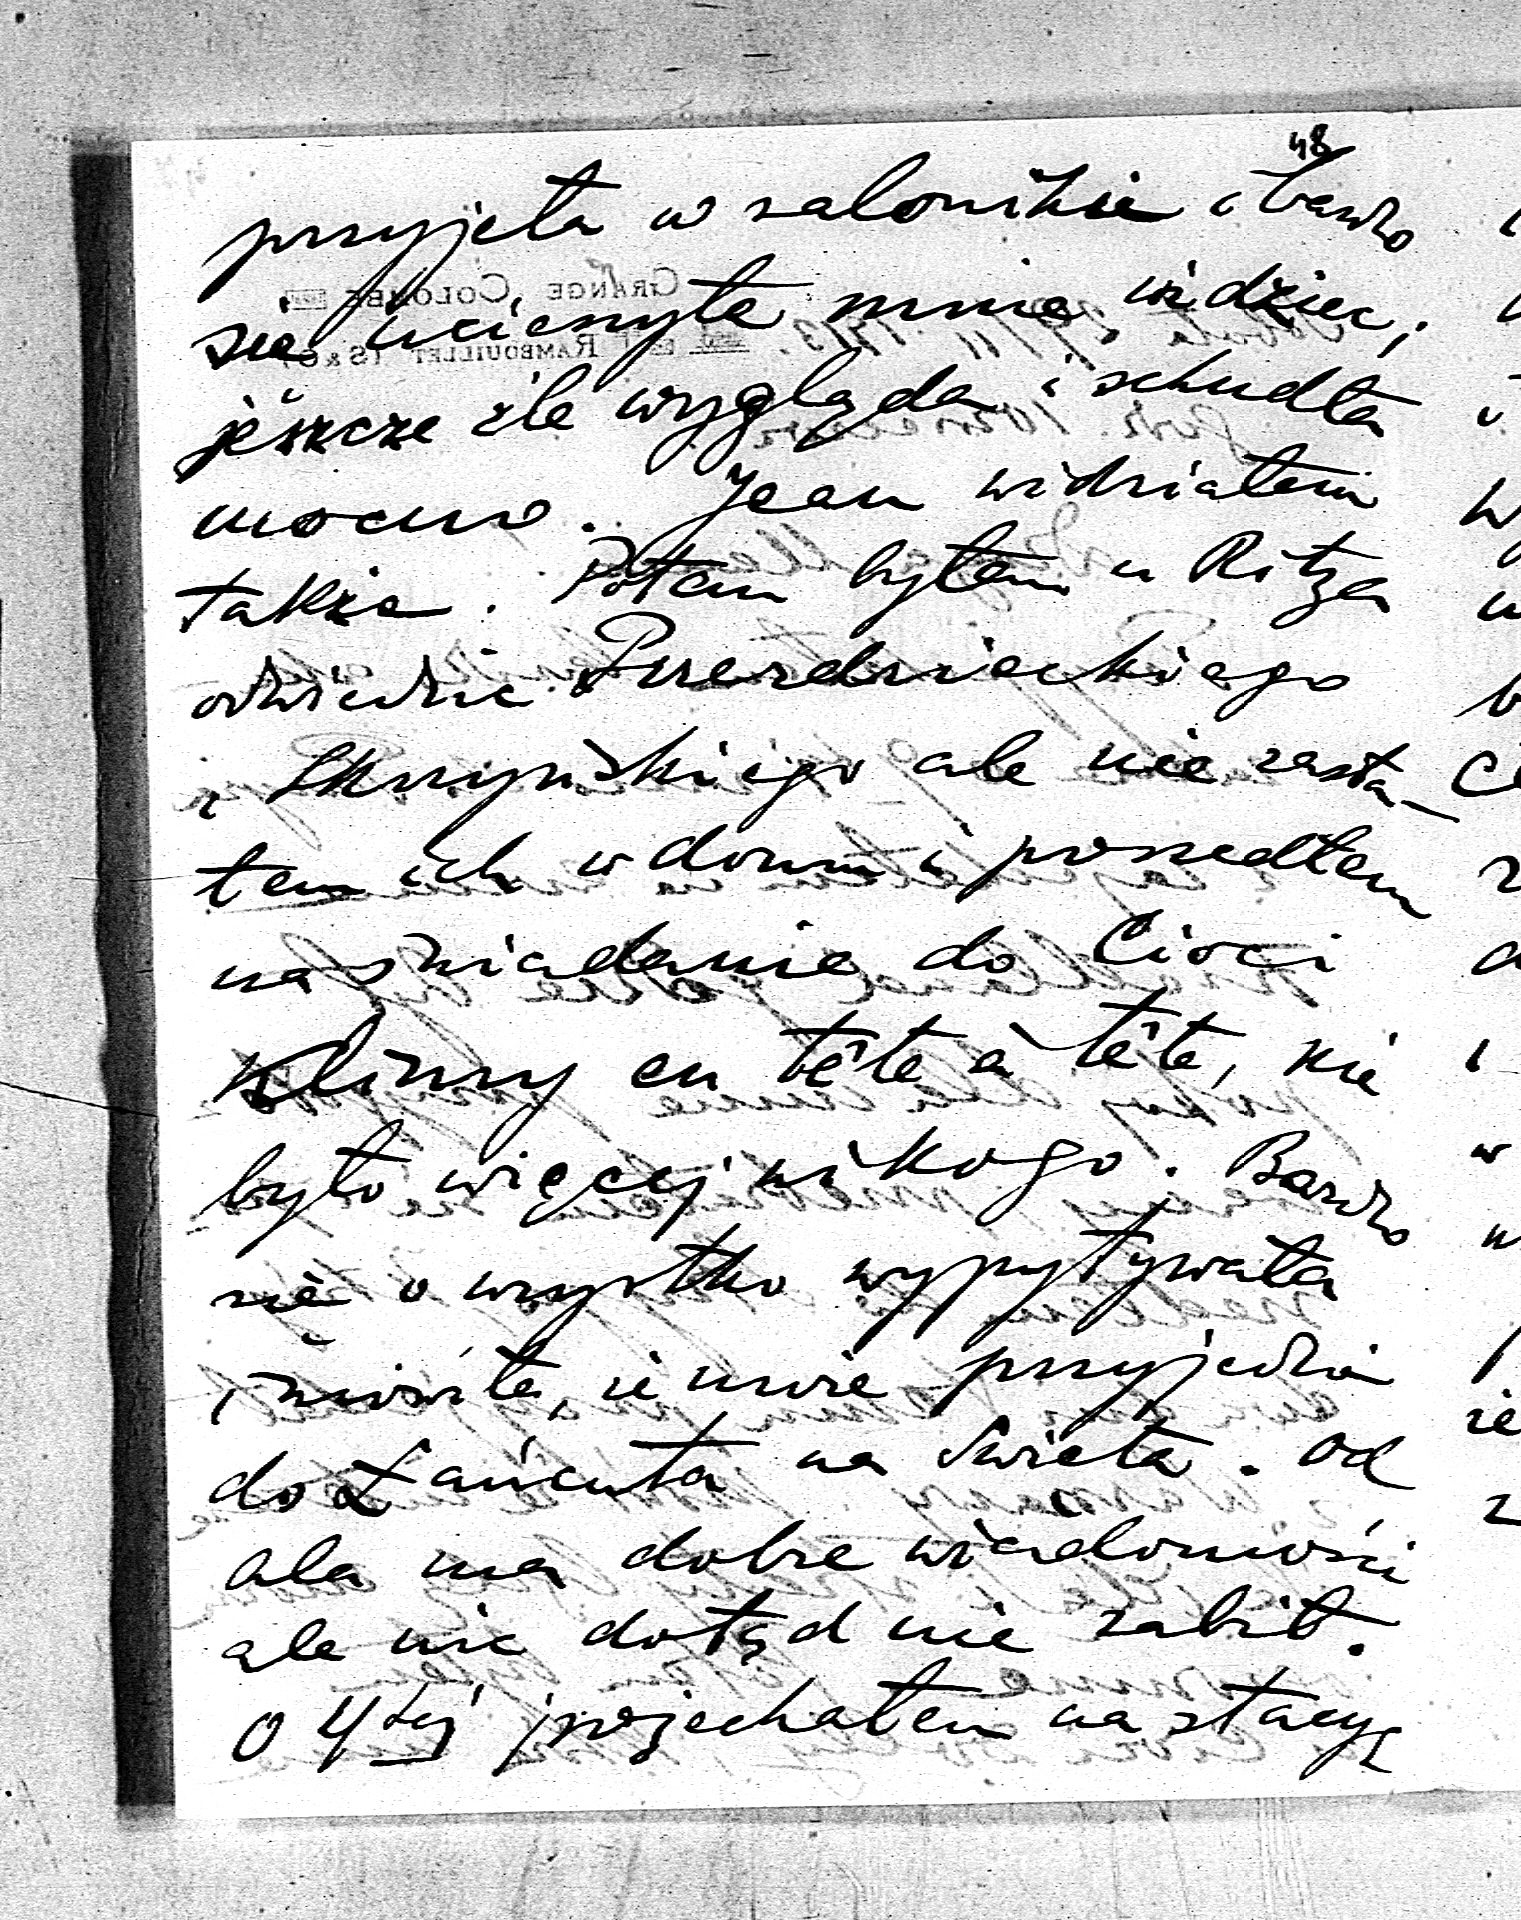 48
przyjęta w saloniku i bardzo
się ucieszyła mnie widzieć,
jeszcze źle wygląda i schudła
mocno. Jean widziałem
także. Potem byłem u Ritza
odwiedzić Przezdzieckiego
i Skrzyńskiego ale nie zasta-
łem ich w domu i poszedłem
na śniadanie do Cioci
Klizzy en tête à tête, nie
było więcej nikogo. Bardzo
się o wszystko wypytywała
i mówiła, że może przyjedzie
do Łańcuta na Święta. Od
Ala ma dobre wiadomości
ale nic dotąd nie zabił.
O 4tej pojechałem na stacyę
GRANGE COLOMBE
RAMBOUILLET (S & O)